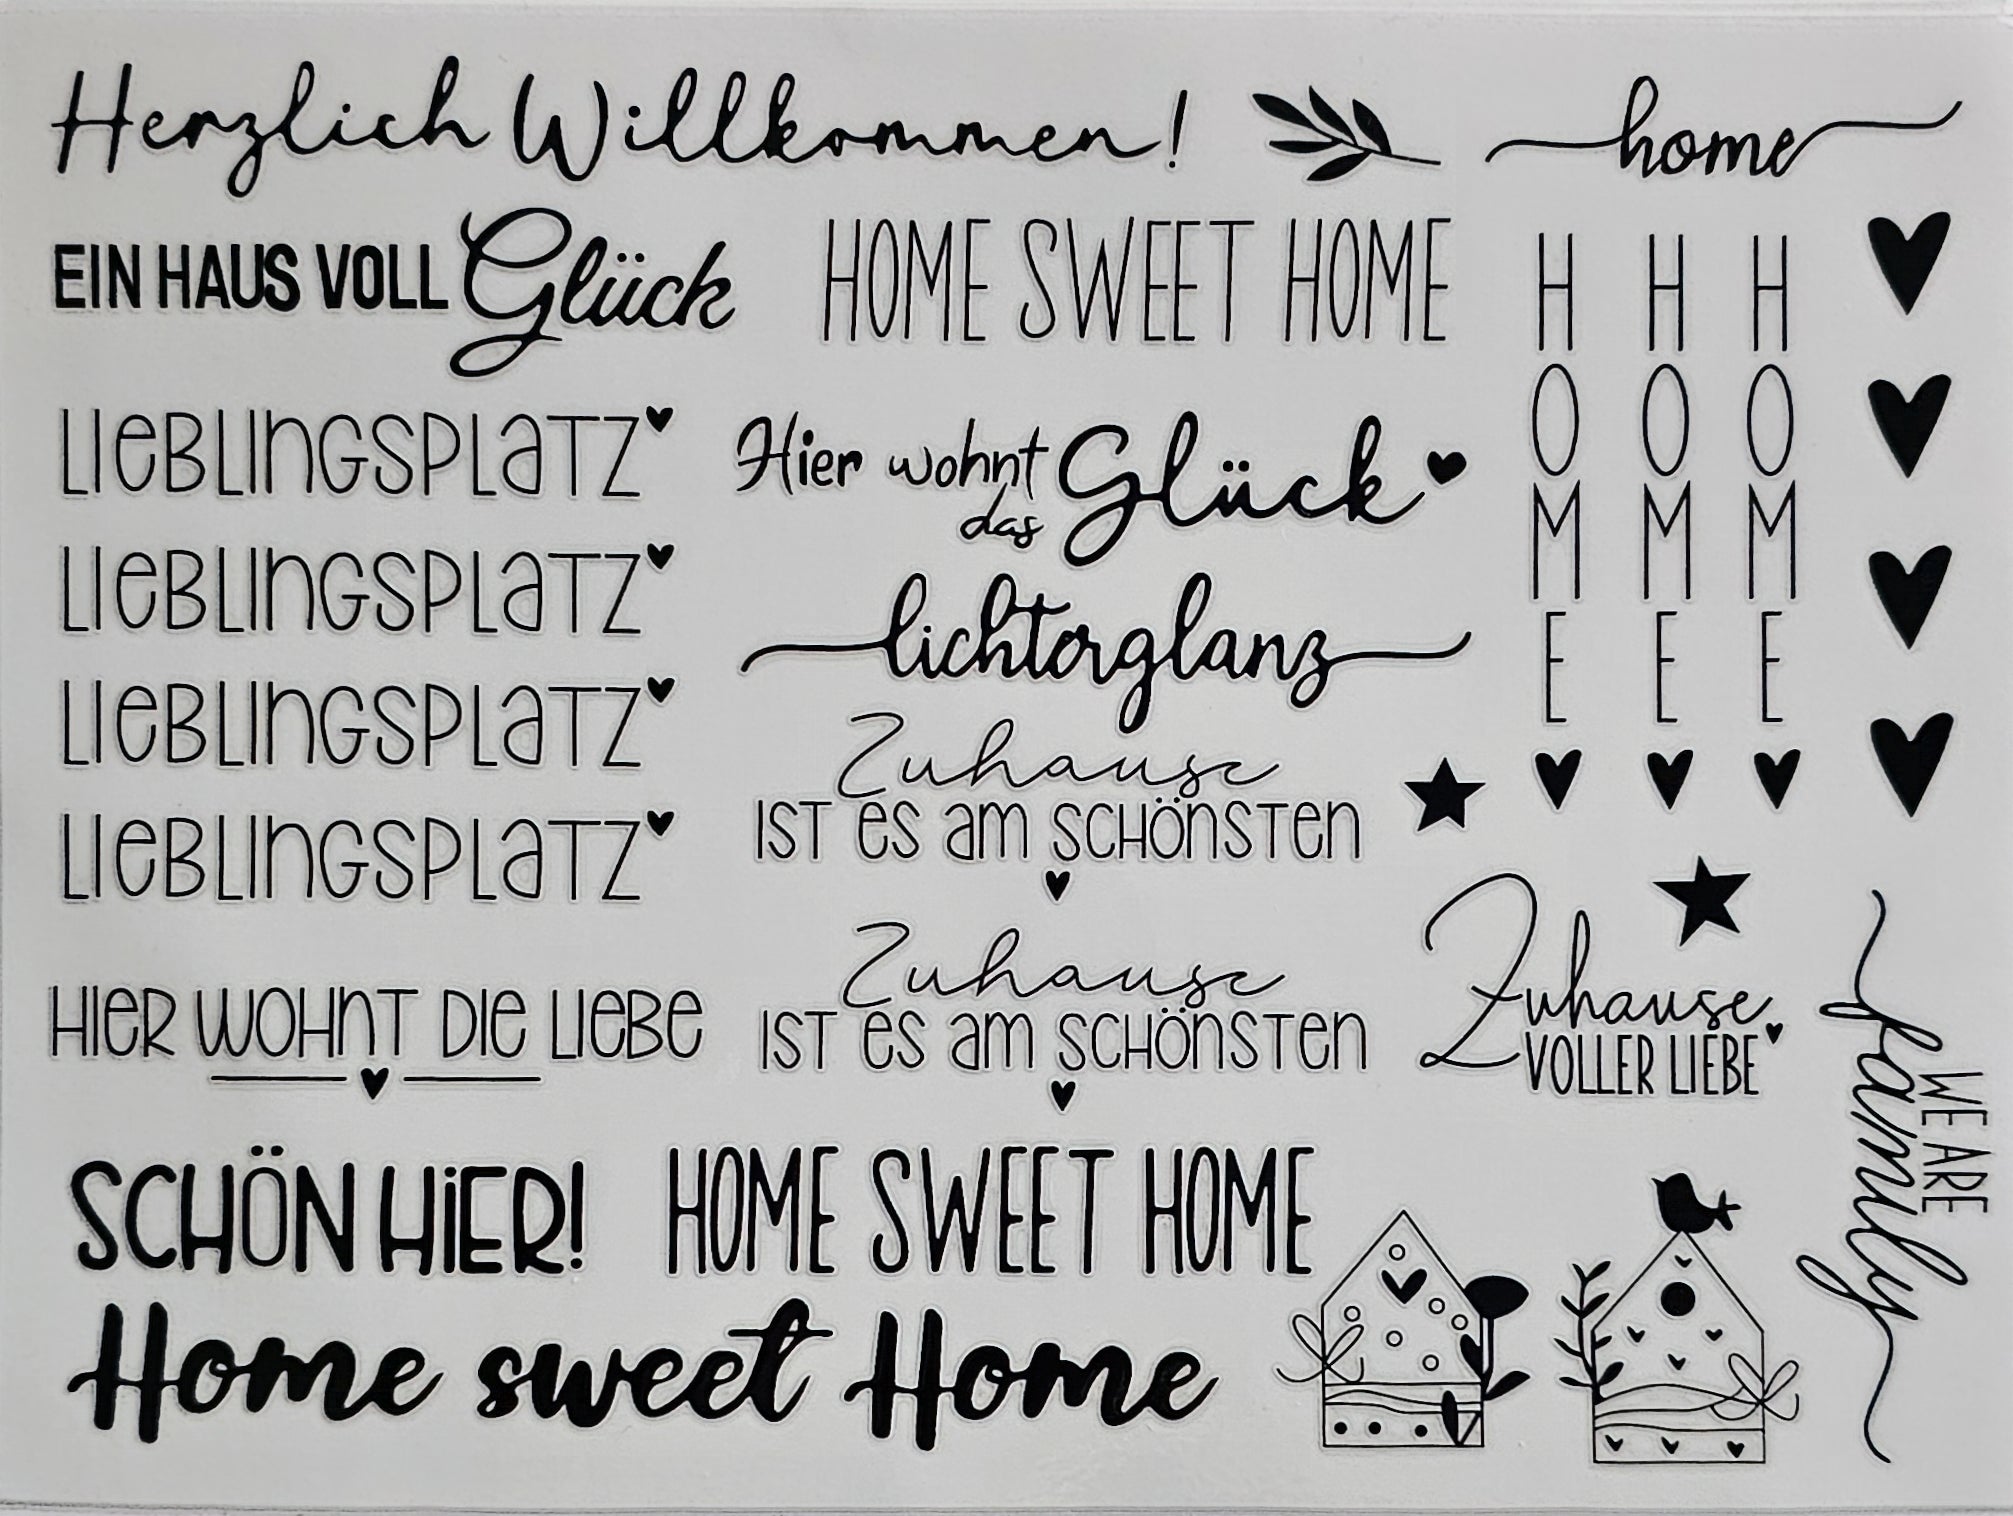 Herzlich Willkommen!
home
EIN HAUS VOLL Glück
HOME SWEET HOME
H H H
O O O
M M M
E E E
LIEBLINGSPLATZ
Hier wohnt
das Glück
LIEBLINGSPLATZ
lichterglanz
LIEBLINGSPLATZ
Zuhause
IST ES AM SCHÖNSTEN
LIEBLINGSPLATZ
Zuhause
IST ES AM SCHÖNSTEN
Zuhause
VOLLER LIEBE
HIER WOHNT DIE LIEBE
WE ARE
family
SCHÖN HIER!
HOME SWEET HOME
Home sweet Home